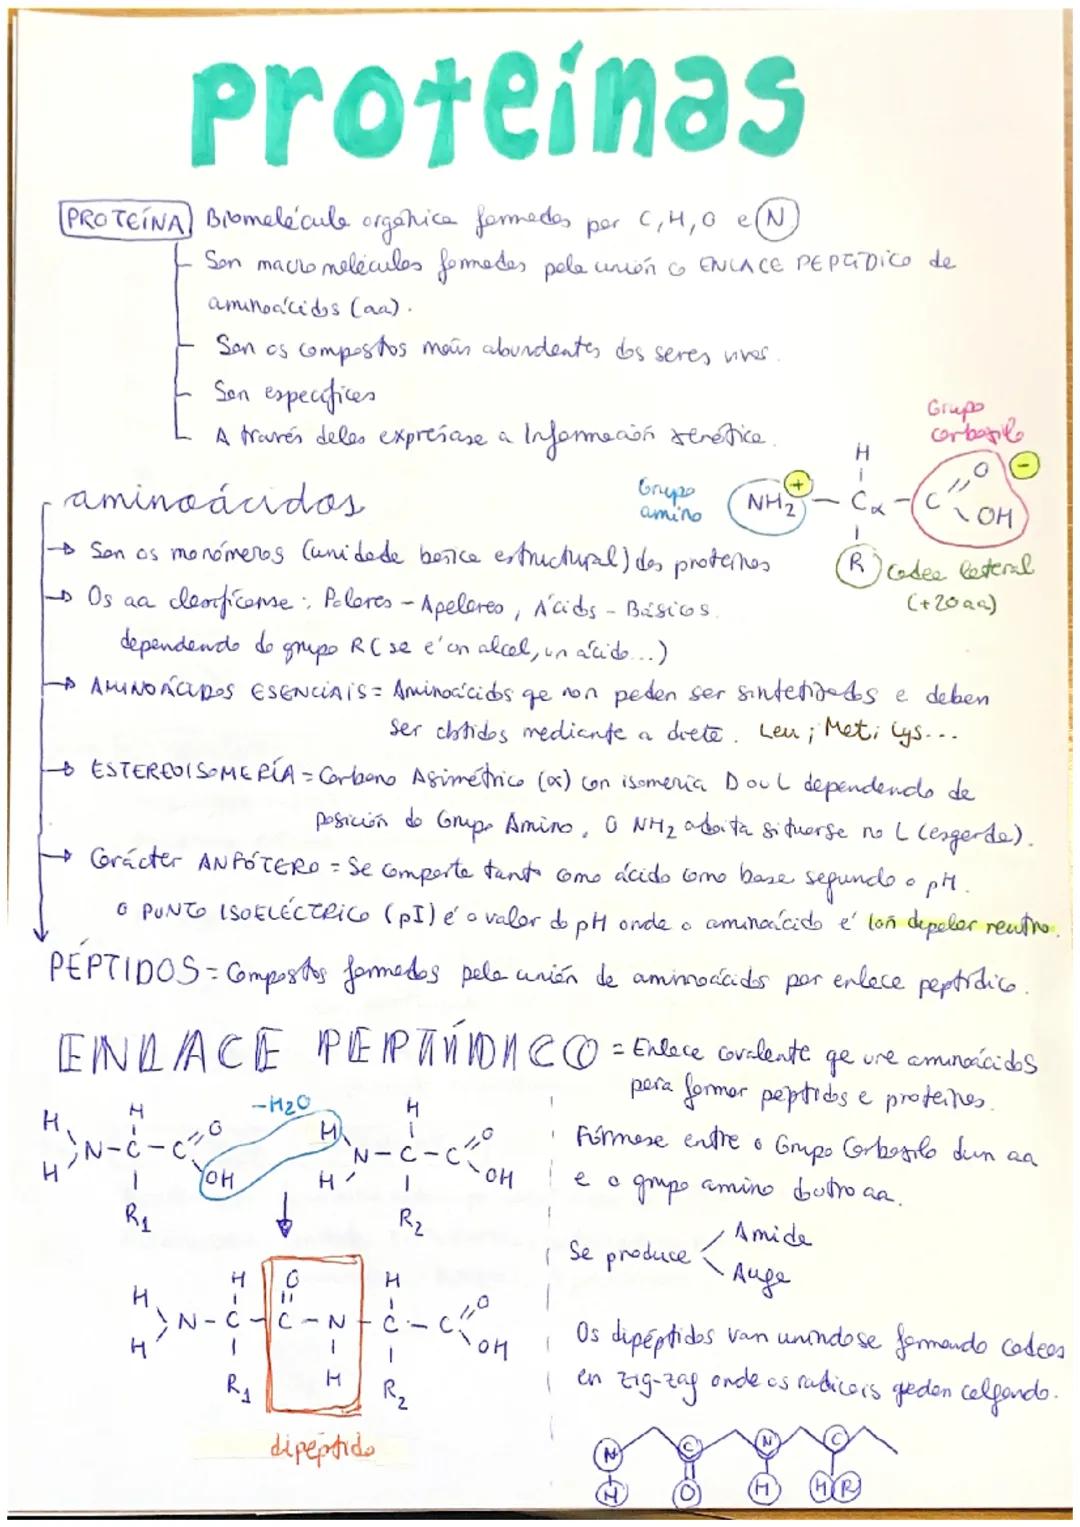 proteínas
PROTEÍNA Biomolécula orgánica formadas por C, H, O e N
Son macromoléculas formadas pola unión o ENLACE PEPTÍDICO de
aminoácidos (aa).
Son os compostos máis abundantes dos seres vivos.
Son específicas
A través delas exprésase a Información xenética.
Grupo
carboxilo
H
O
Grupo
amino
NH2 + — Cα — C
OH
-
R
cadea lateral
(+20aa)
aminoácidos
→ Son os monómeros (unidade básica estructural) das proteínas
→ Os aa clasifícanse: Polares - Apolares, Ácidos - Básicos.
dependendo do grupo R (se é un alcol, un ácido...)
→ AMINOÁCIDOS ESENCIAIS = Aminoácidos qe non poden ser sintetizados e deben
ser obtidos mediante a dieta. Leu; Met; Lys...
→ ESTEREOISOMERÍA = Carbono Asimétrico (α) con isomería D ou L dependendo da
posición do Grupo Amino. O NH2 adoita situarse no L (esqerda).
→ Carácter ANFÓTERO = Se comporta tanto como ácido como base segundo o pH.
O PUNTO ISOELÉCTRICO (pI) é o valor do pH onde o aminoácido é ión dipolar neutro.
PÉPTIDOS = Compostos formados pola unión de aminoácidos por enlace peptídico.
ENLACE PEPTÍDICO = Enlace covalente qe une aminoácidos
para formar péptidos e proteínas.
-H2O
H H O H H O
N-C-C N-C-C
H OH H OH
R1 R2
Fórmase entre o Grupo Carboxilo dun aa
e o grupo amino doutro aa.
Se produce
Amida
Auga
H H O H O
N-C-C-N-C-C
H H OH
R1 R2
dipéptido
Os dipéptidos van unindose formando cadeas
en zig-zag onde os radicais qedan colgando.
N C N C
H O H H R